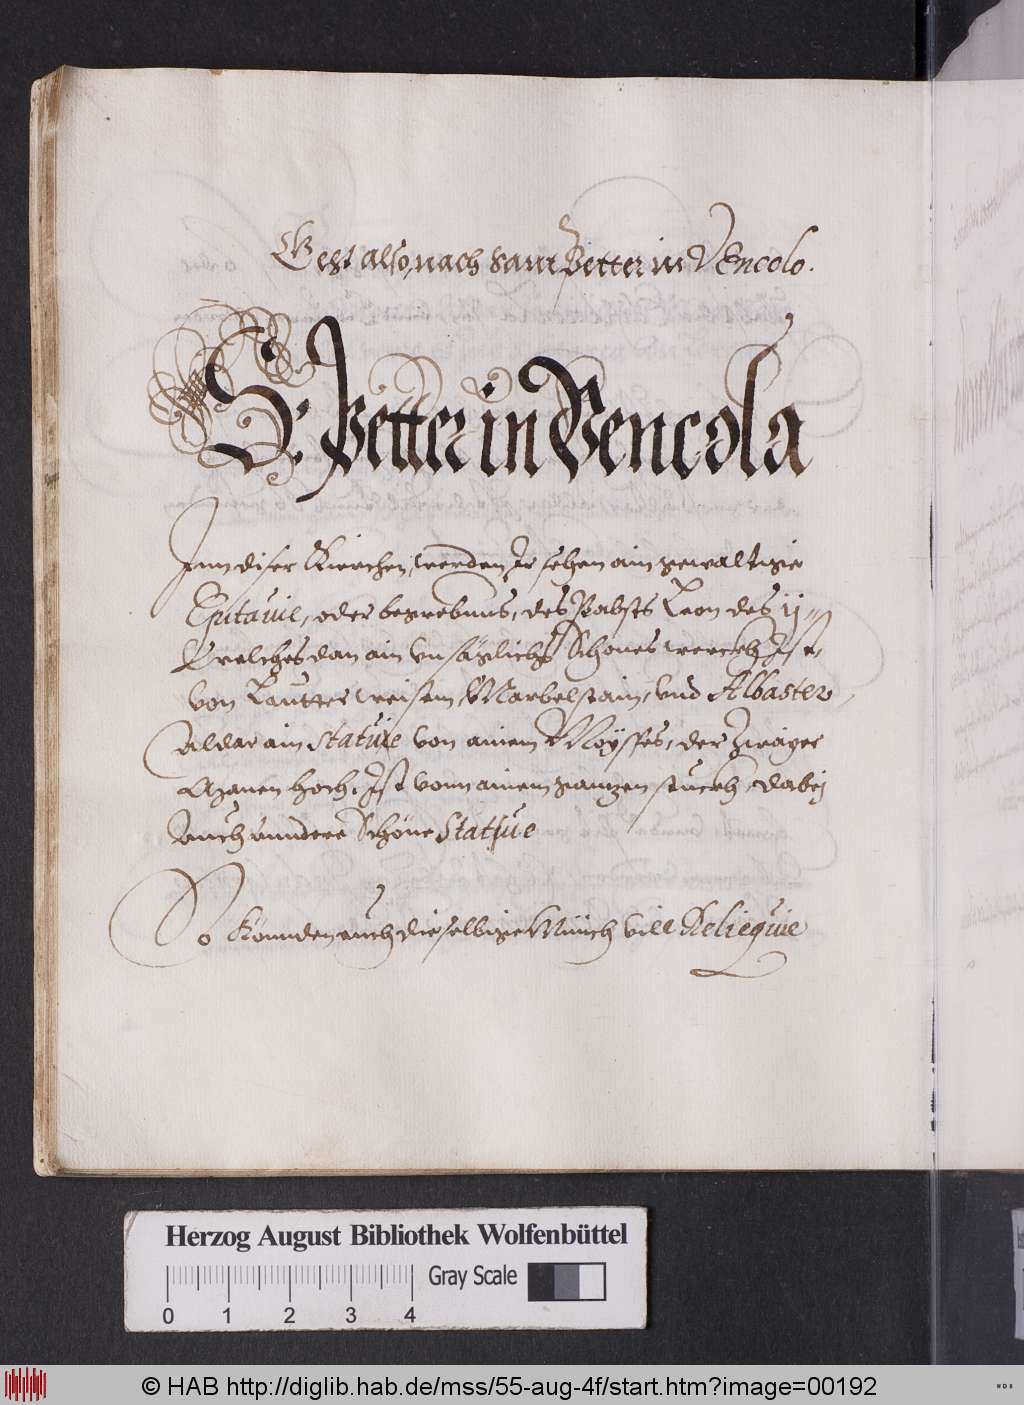 Geht also, nach Sant Petter in Vencolo.
S: Petter in Vencola
Inn diser Kirchen, werden Ir sehen ain gewaltige
Epitauie, oder begrebnus, des Pabsts Leon des ij
Welches dan ain vnsäglichs Schones werckh Ist,
von Lautter weisem, Marbelstain, vnd Albaster
Aldar ain statuie von ainem Moÿsses, der Zwaÿer
Manen hoch, Ist vonn ainem ganzen stuckh, dabej
Auch anndere Schöne Statuie
So Konnden auch dieselbige Münch vill Reliequie
Herzog August Bibliothek Wolfenbüttel
Gray Scale
0 1 2 3 4
© HAB http://diglib.hab.de/mss/55-aug-4f/start.htm?image=00192